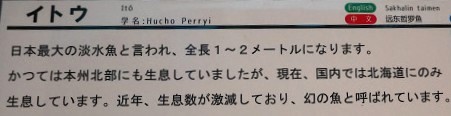 イトウ
Itô
学名:Hucho Perryi
English Sakhalin taimen
中文 远东哲罗鱼
日本最大の淡水魚と言われ、全長1~2メートルになります。
かつては本州北部にも生息していましたが、現在、国内では北海道にのみ
生息しています。近年、生息数が激減しており、幻の魚と呼ばれています。